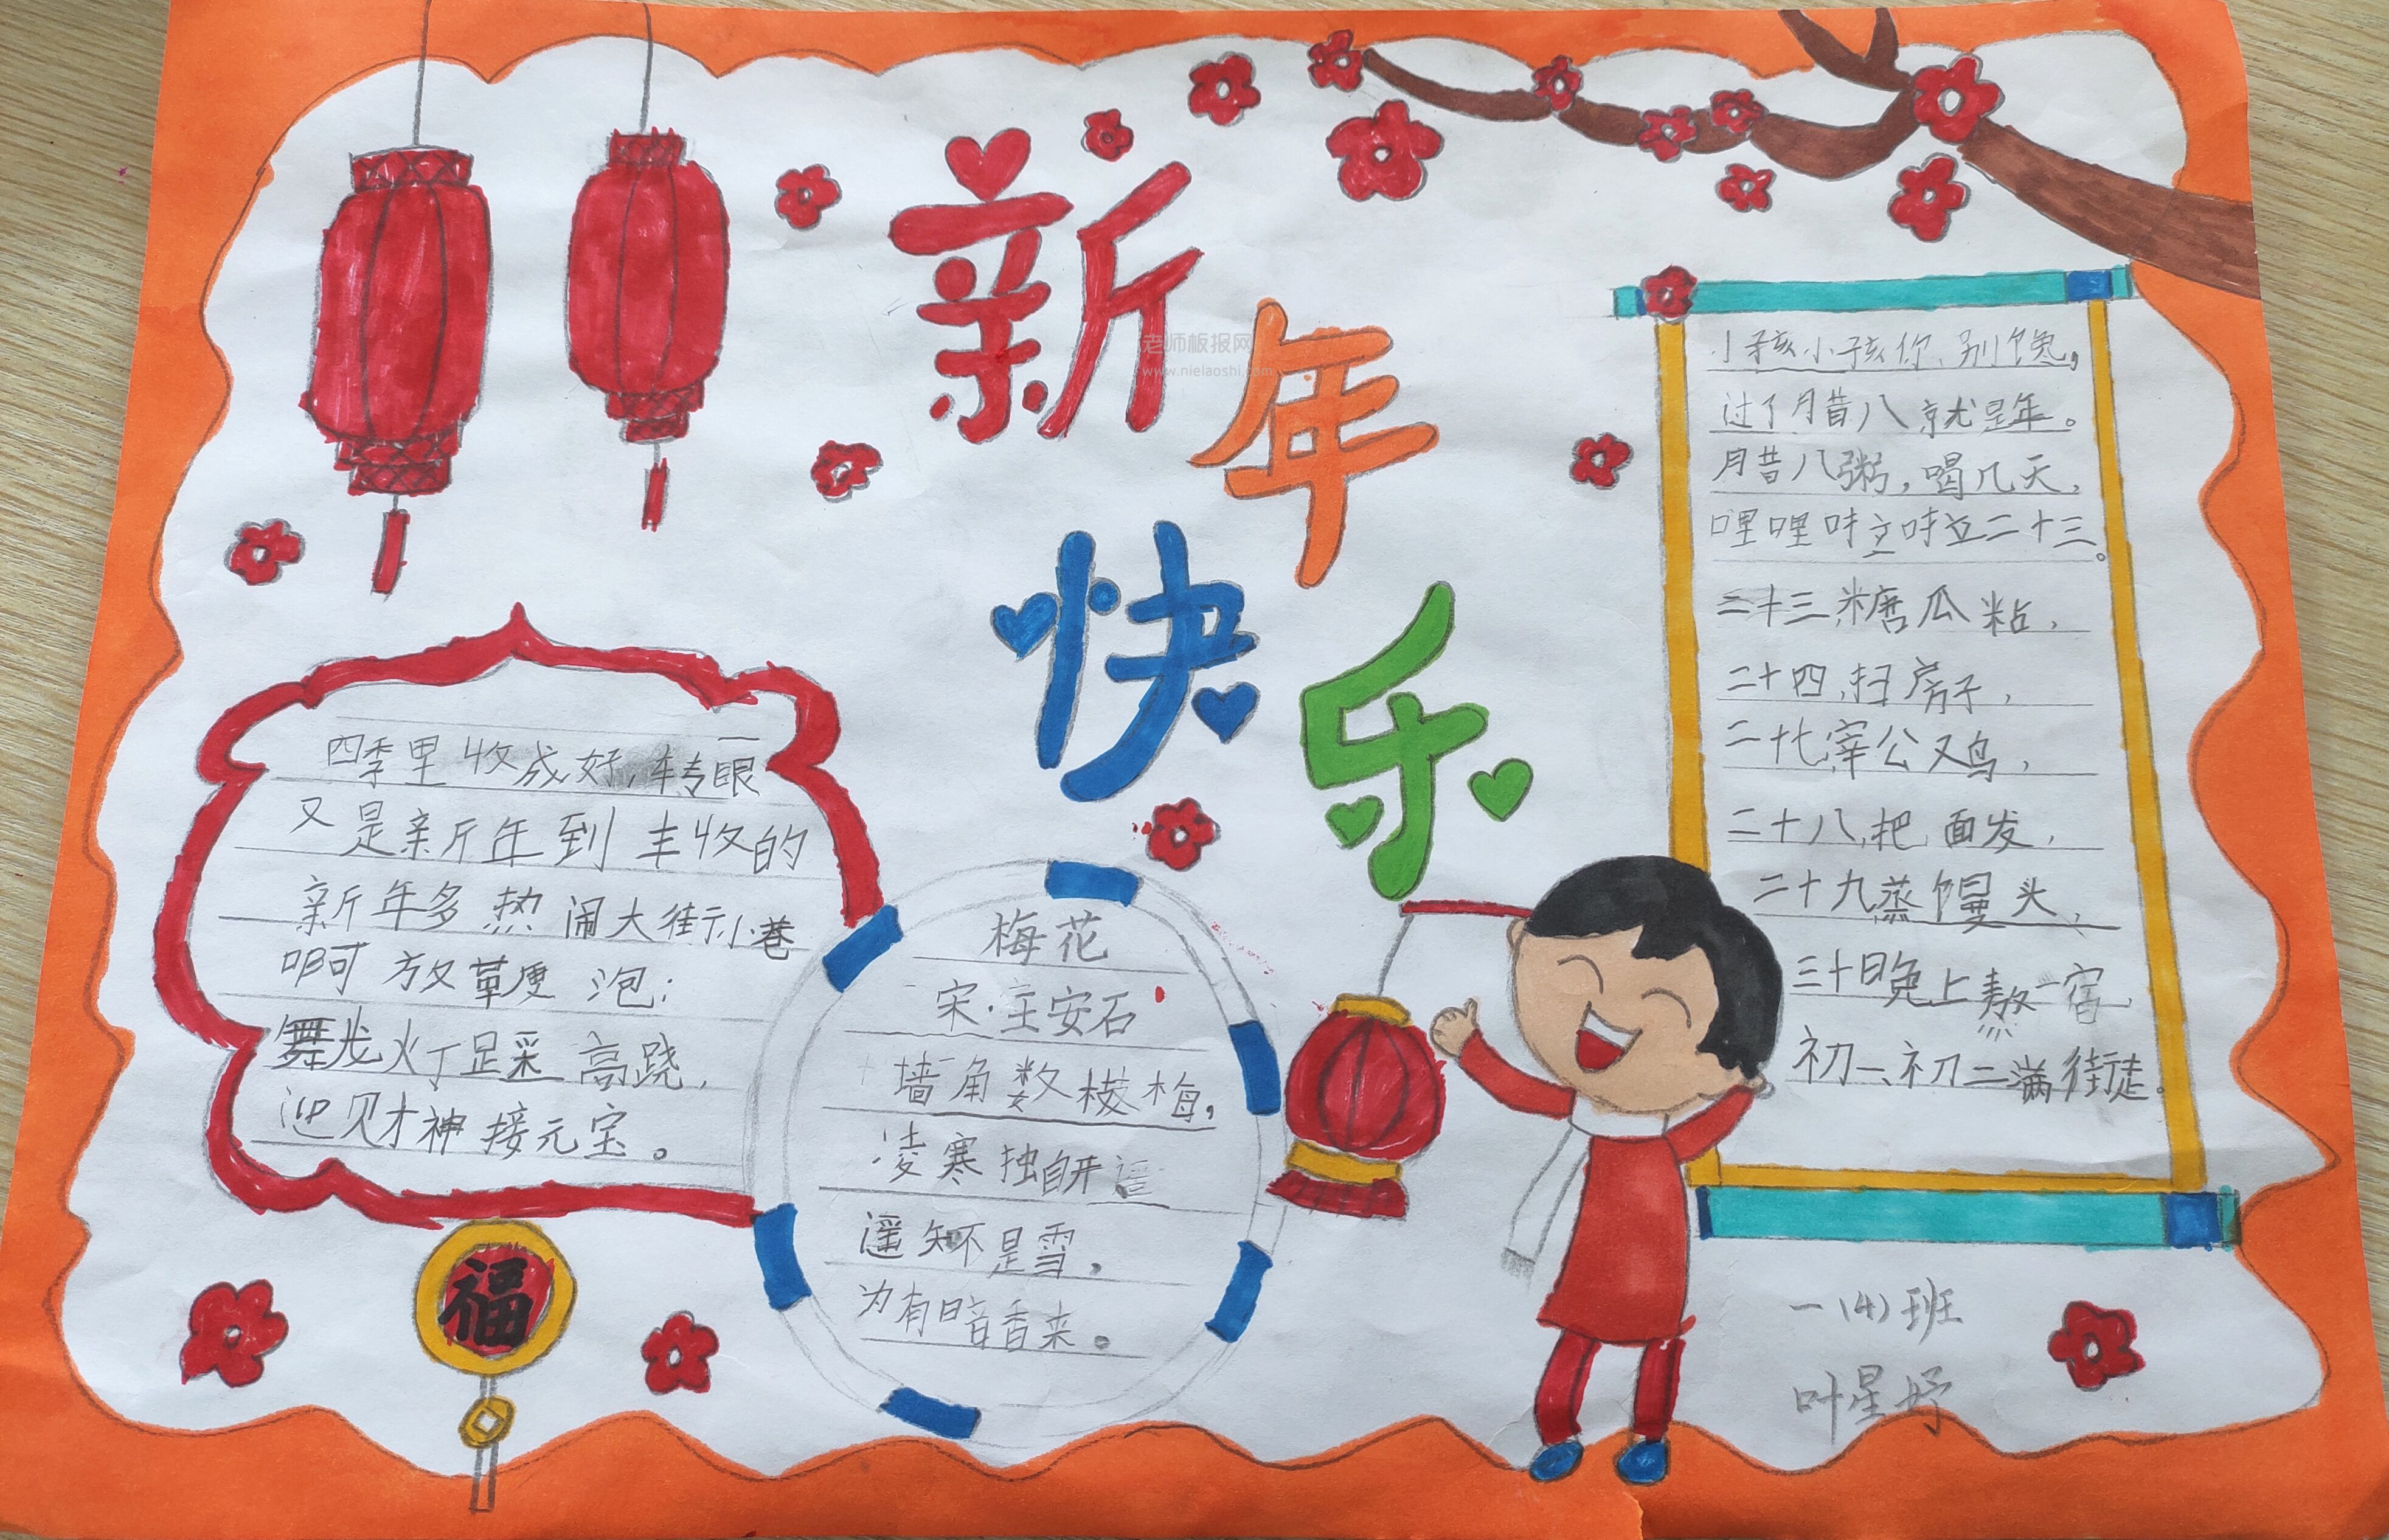 新年
快乐
老师板报网
www.nielaoshi.com
四季里收成好,转眼一
又是新年到丰收的
新年多热闹大街小巷
啊可放鞭泡;
舞龙火丁踩高跷,
迎财神接元宝。
福
梅花
宋·主安石
墙角数梅,
凌寒独自开
遥知不是雪,
为有暗香来。
小孩小孩你别馋,
过了腊八就是年。
腊八粥,喝几天,
哩哩啦啦二十三。
二十三糖瓜粘,
二十四,扫房子,
二十七宰公又鸟,
二十八,把面发,
二十九蒸馒头,
三十晚上熬一宿,
初一、初二满街走。
一(4)班
叶星妤